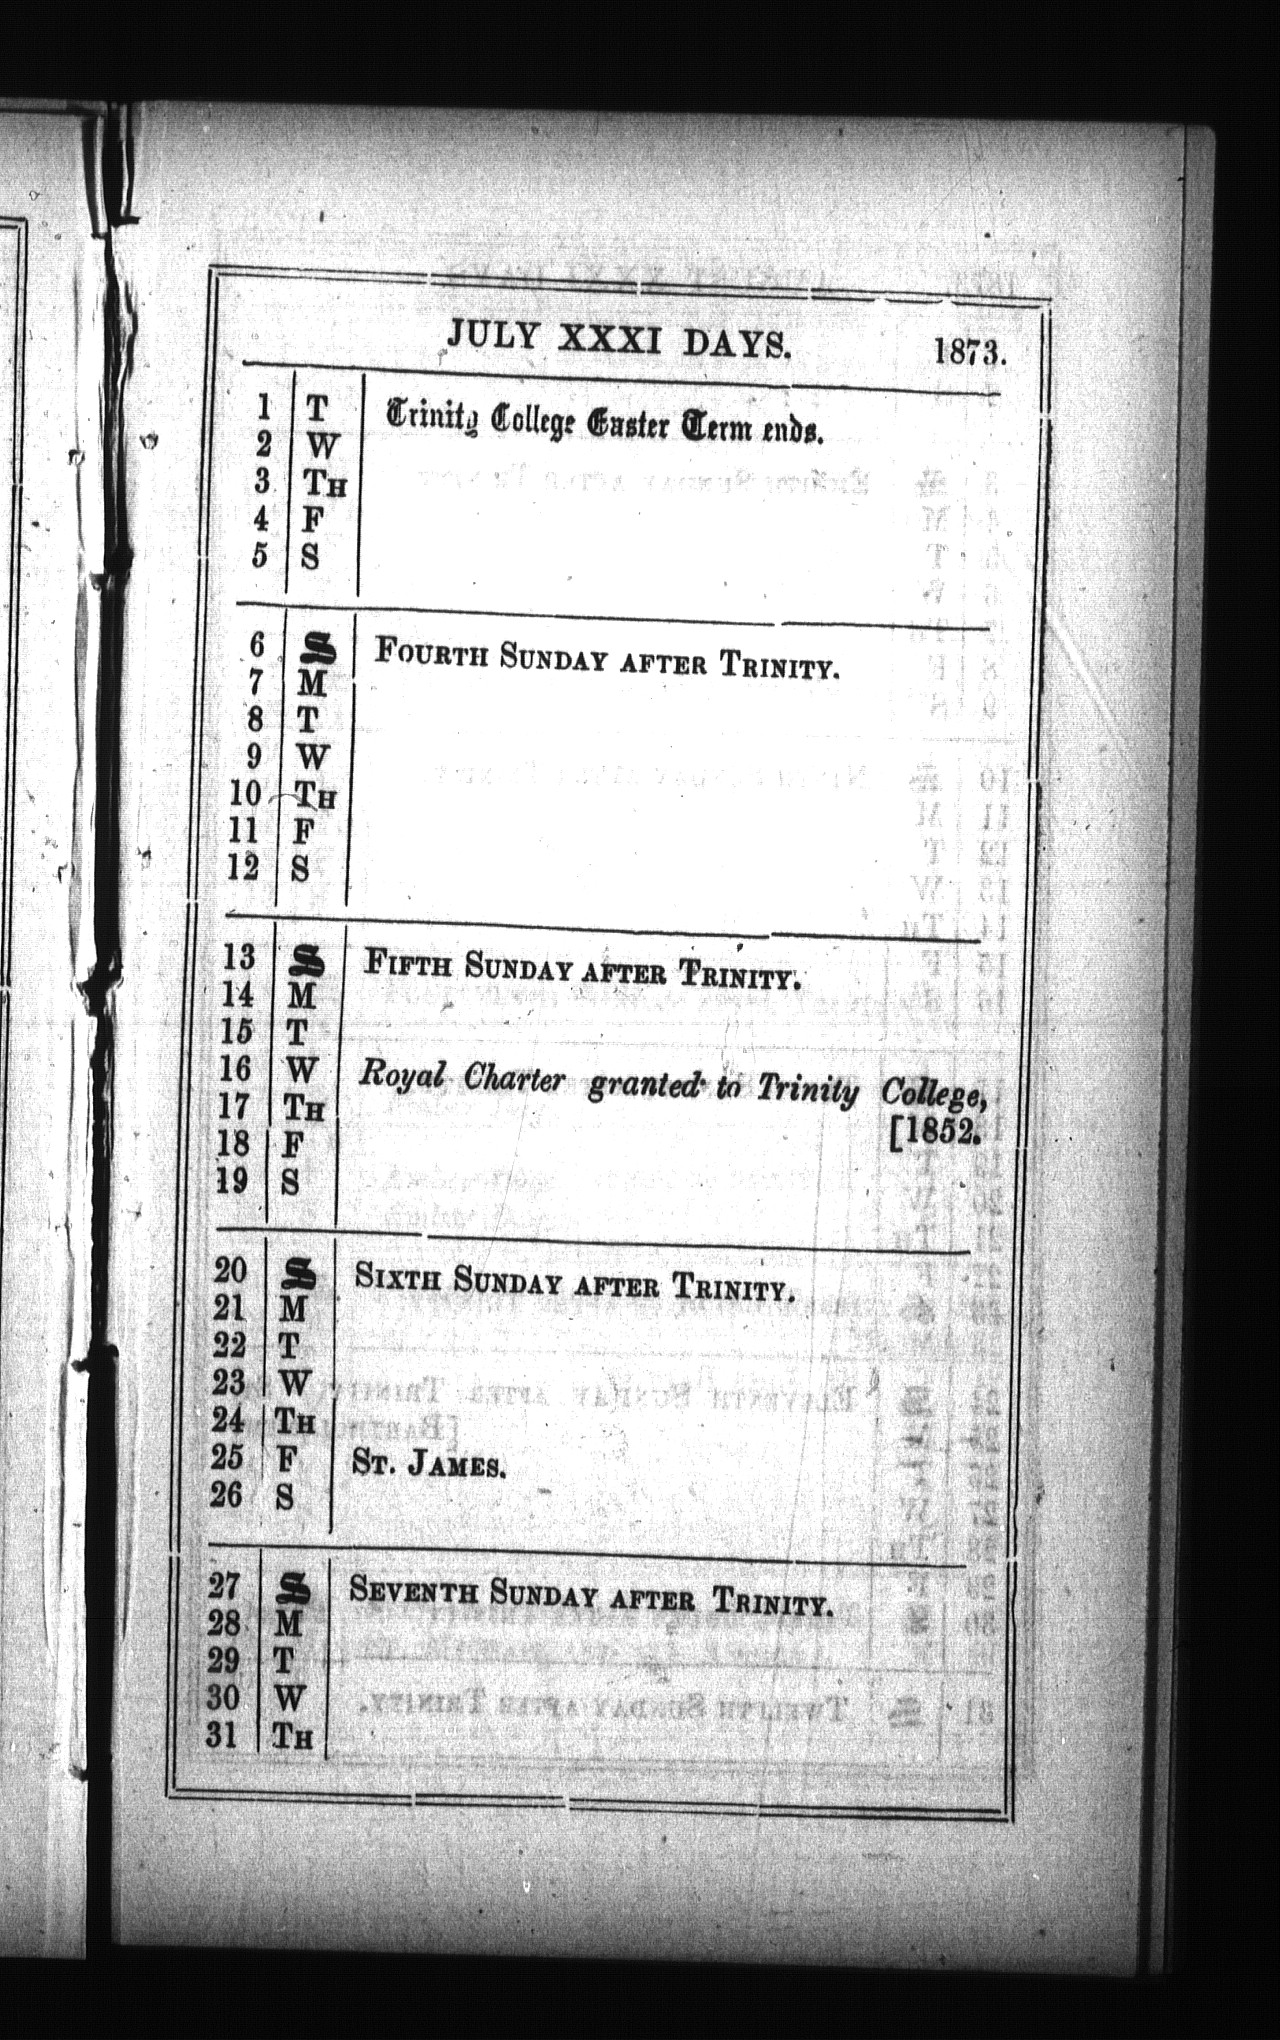 JULY XXXI DAYS. 1873.
1 T Trinity College Easter Term ends.
2 W
3 TH
4 F
5 S
6 S FOURTH SUNDAY AFTER TRINITY.
7 M
8 T
9 W
10 TH
11 F
12 S
13 S FIFTH SUNDAY AFTER TRINITY.
14 M
15 T
16 W Royal Charter granted to Trinity College,
17 TH [1852.
18 F
19 S
20 S SIXTH SUNDAY AFTER TRINITY.
21 M
22 T
23 W
24 TH
25 F ST. JAMES.
26 S
27 S SEVENTH SUNDAY AFTER TRINITY.
28 M
29 T
30 W
31 TH